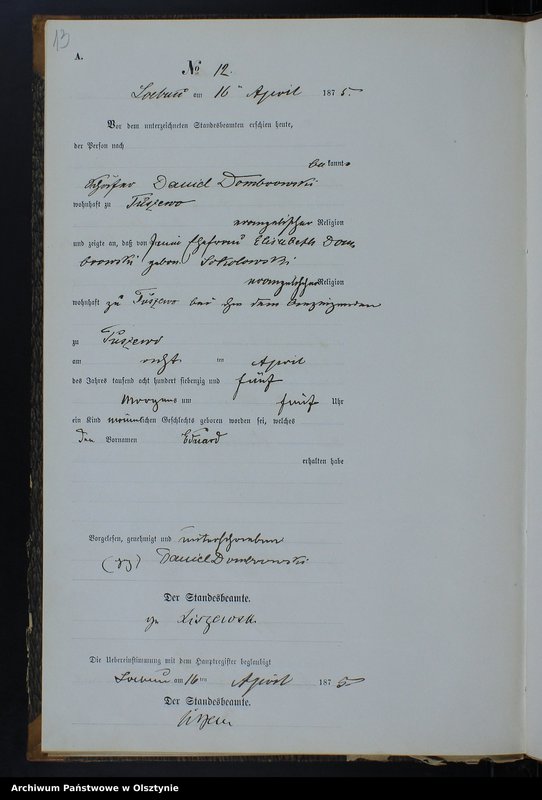 13
A.
No 12.
Loebau am 16 ten April 1875.
Vor dem unterzeichneten Standesbeamten erschien heute,
der Person nach
bekannt
Schäfer Daniel Dombrowski
wohnhaft zu Tuszewo
evangelischer Religion
und zeigte an, daß von seiner Ehefrau Elisabeth Dom-
browski geboren Sokolowski
evangelischer Religion
wohnhaft zu Tuszewo bei ihm dem Anzeigenden
zu Tuszewo
am acht ten April
des Jahres tausend acht hundert siebenzig und fünf
Morgens um fünf Uhr
ein Kind männlichen Geschlechts geboren worden sei, welches
den Vornamen Eduard
erhalten habe
Vorgelesen, genehmigt und unterschrieben
(gez) Daniel Dombrowski
Der Standesbeamte.
gez Liszewski
Die Uebereinstimmung mit dem Hauptregister beglaubigt
Loebau am 16 ten April 1875
Der Standesbeamte.
Archiwum Państwowe w Olsztynie